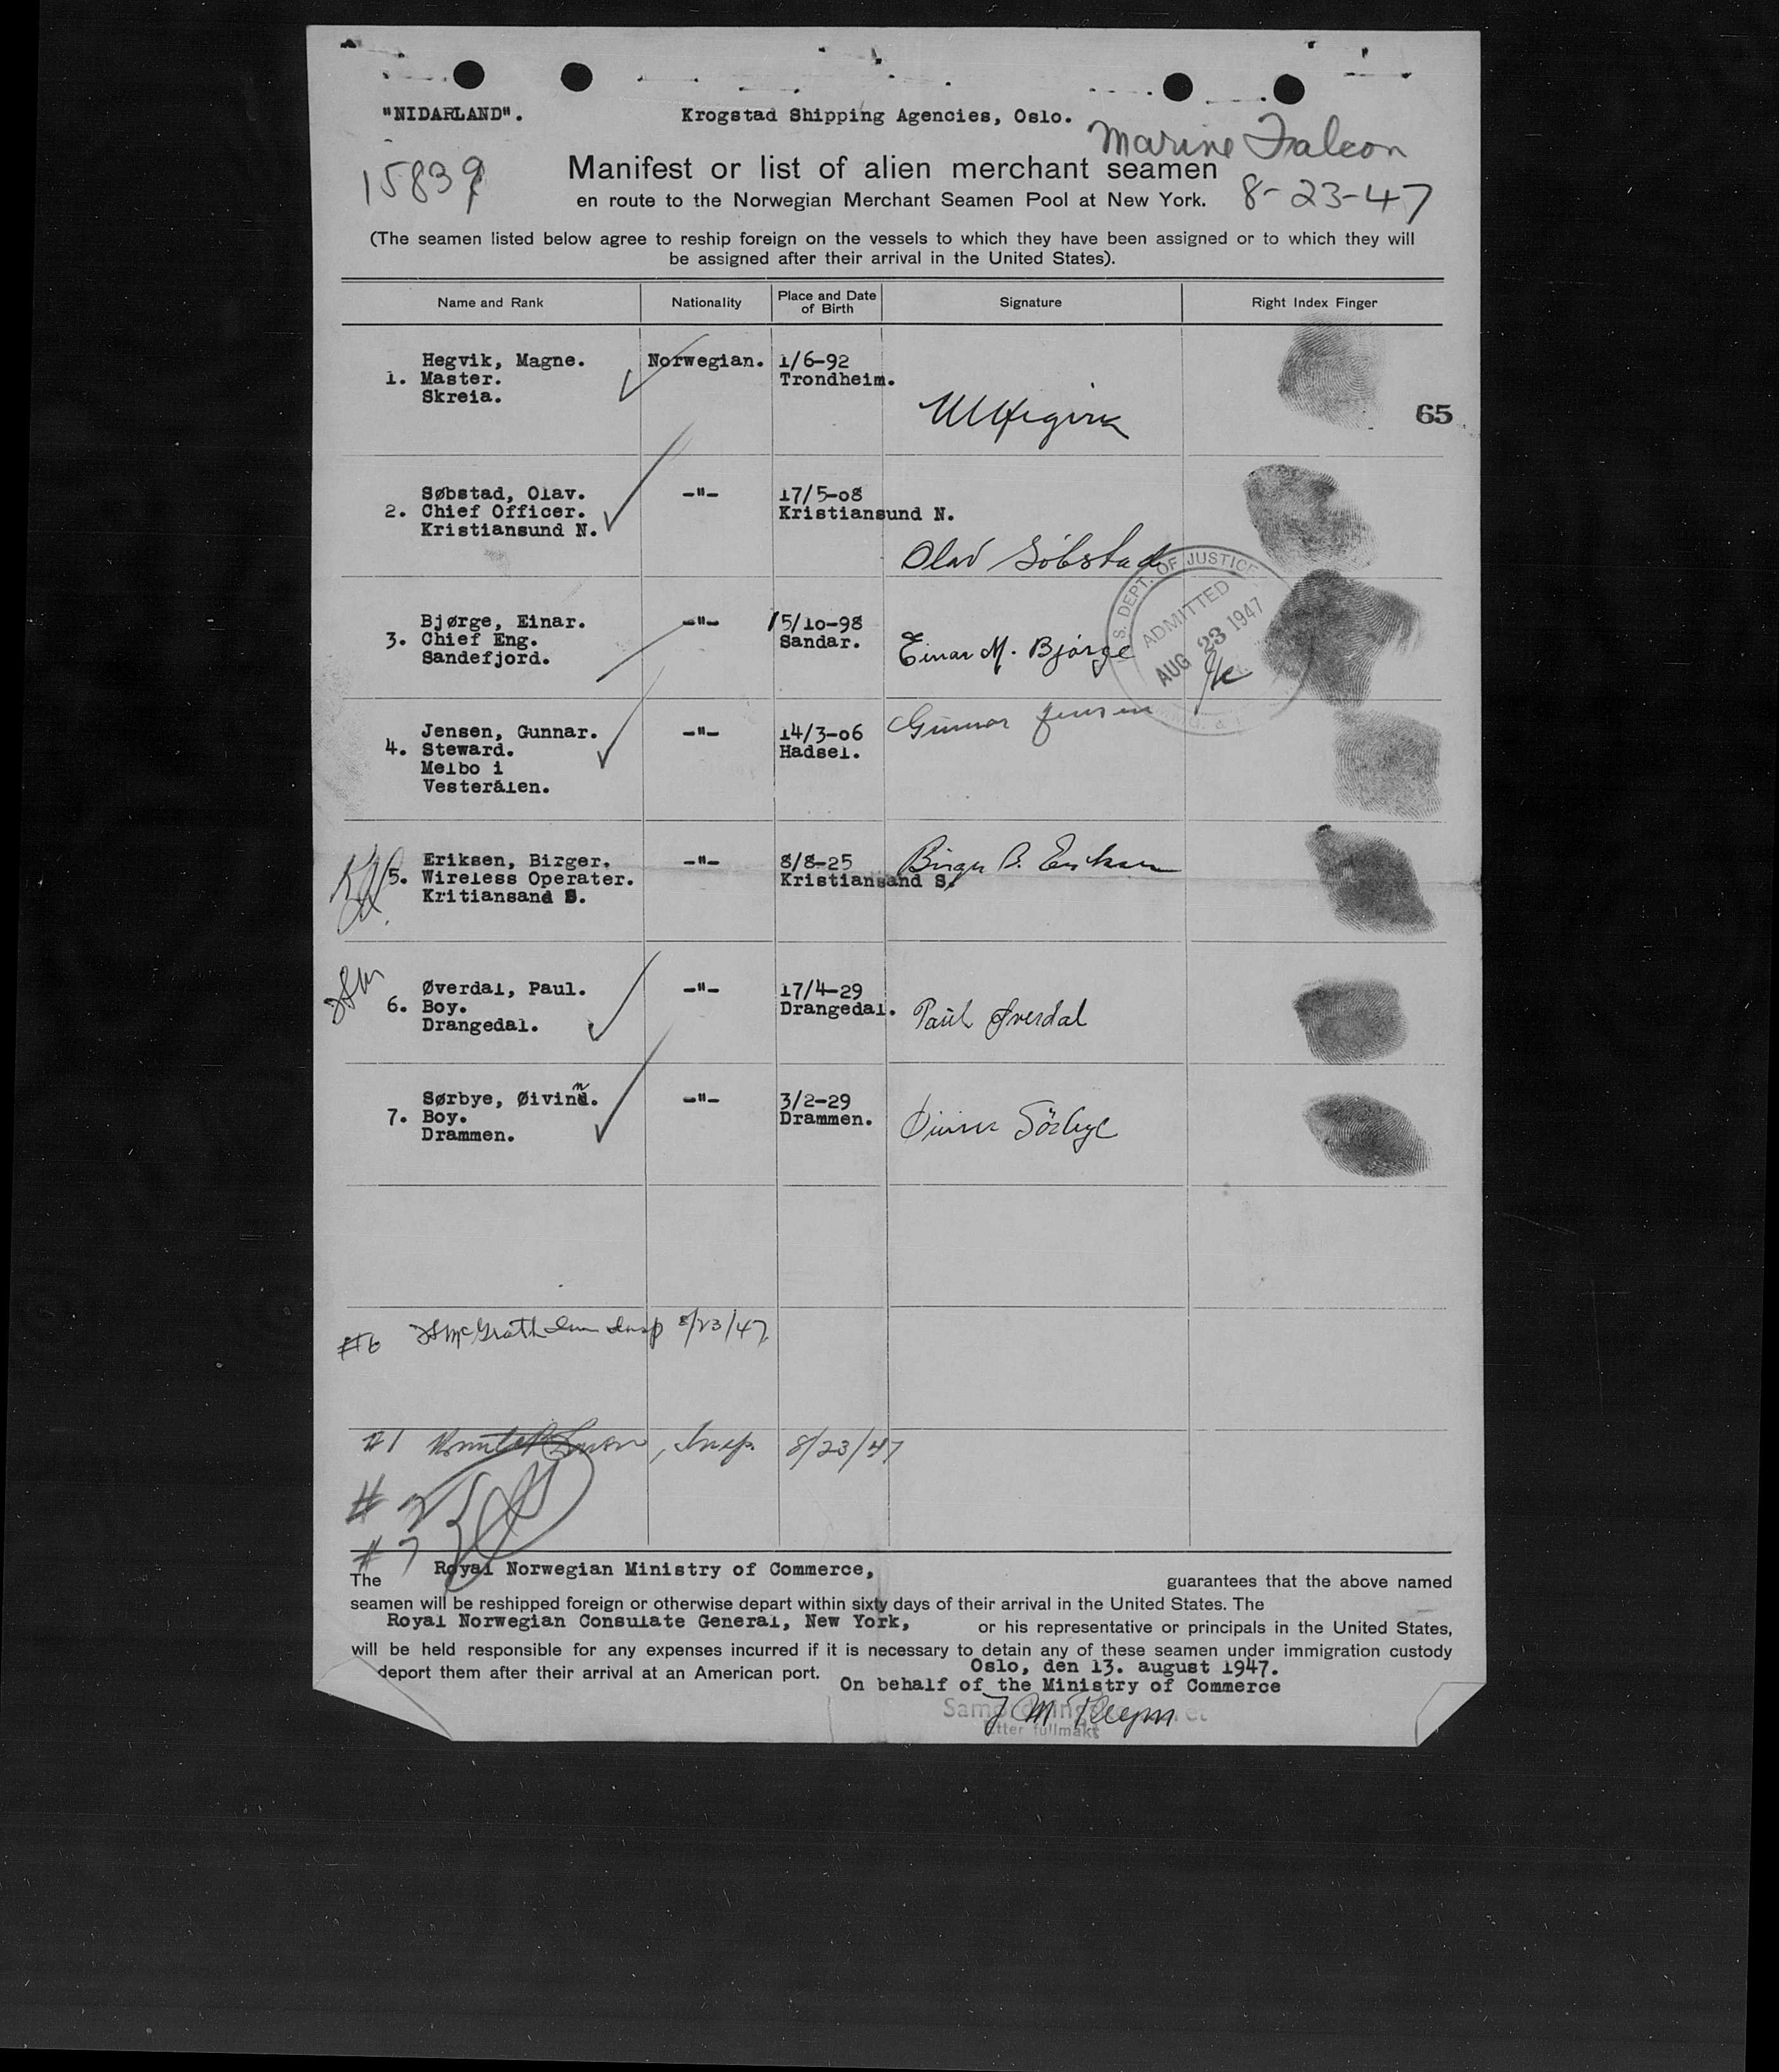 "NIDARLAND".
Krogstad Shipping Agencies, Oslo.
Marine Falcon
15839
Manifest or list of alien merchant seamen
8-23-47
en route to the Norwegian Merchant Seamen Pool at New York.
(The seamen listed below agree to reship foreign on the vessels to which they have been assigned or to which they will
be assigned after their arrival in the United States).
Name and Rank Nationality Place and Date of Birth Signature Right Index Finger
Hegvik, Magne. Norwegian. 1/6-92
1. Master. Trondheim.
Skreia.
MHegvik
65
Søbstad, Olav. -"- 17/5-08
2. Chief Officer. Kristiansund N.
Kristiansund N.
Olav Søbstad
S. DEPT. OF JUSTICE
ADMITTED
AUG 23 1947
Bjørge, Einar. -"- 15/10-98
3. Chief Eng. Sandar.
Sandefjord.
Einar M. Bjørge
Jensen, Gunnar. -"- 14/3-06
4. Steward. Hadsel.
Melbo i
Vesterålen.
Gunnar Jensen
Eriksen, Birger. -"- 8/8-25
5. Wireless Operater. Kristiansand S.
Kritiansand S.
Birger Eriksen
Øverdal, Paul. -"- 17/4-29
6. Boy. Drangedal.
Drangedal.
Paul Øverdal
Sørbye, Øivind. -"- 3/2-29
n
7. Boy. Drammen.
Drammen.
Øivinn Sörbye
#6 McGrath Imm Insp 8/23/47
#1 , Insp. 8/23/47
# 2
# 7
The Royal Norwegian Ministry of Commerce, guarantees that the above named
seamen will be reshipped foreign or otherwise depart within sixty days of their arrival in the United States. The
Royal Norwegian Consulate General, New York, or his representative or principals in the United States,
will be held responsible for any expenses incurred if it is necessary to detain any of these seamen under immigration custody
deport them after their arrival at an American port.
Oslo, den 13. august 1947.
On behalf of the Ministry of Commerce
etter fullmakt